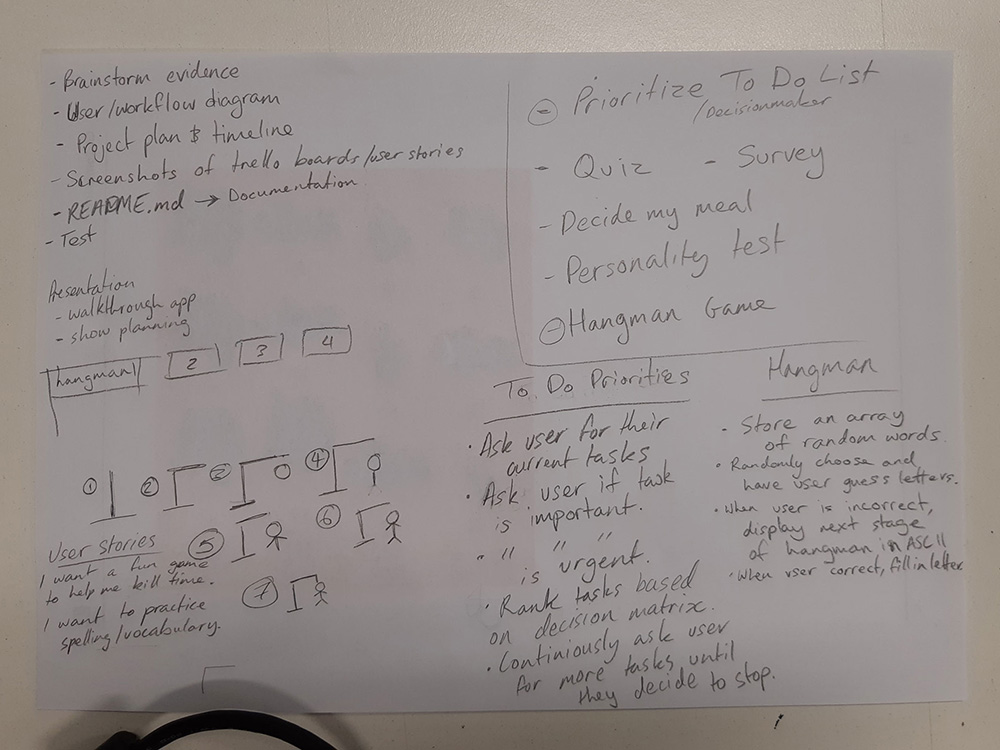 - Brainstorm evidence
- User/workflow diagram
- Project plan & timeline
- Screenshots of trello boards/user stories
- README.md → Documentation
- Test
Presentation
- walkthrough app
- show planning
hangman 2 3 4
① ② ② ④
⑤ ⑥
⑦
User Stories
I want a fun game
to help me kill time.
I want to practice
spelling/vocabulary.
- Prioritize To Do List
/Decisionmaker
- Quiz - Survey
- Decide my meal
- Personality test
- Hangman Game
To Do Priorities
· Ask user for their
current tasks
· Ask user if task
is important.
" " " "
is urgent.
· Rank tasks based
on decision matrix.
· Continiously ask user
for more tasks until
they decide to stop.
Hangman
- Store an array
of random words.
· Randomly choose and
have user guess letters.
· When user is incorrect,
display next stage
of hangman in ASCII
· When user correct, fill in letter